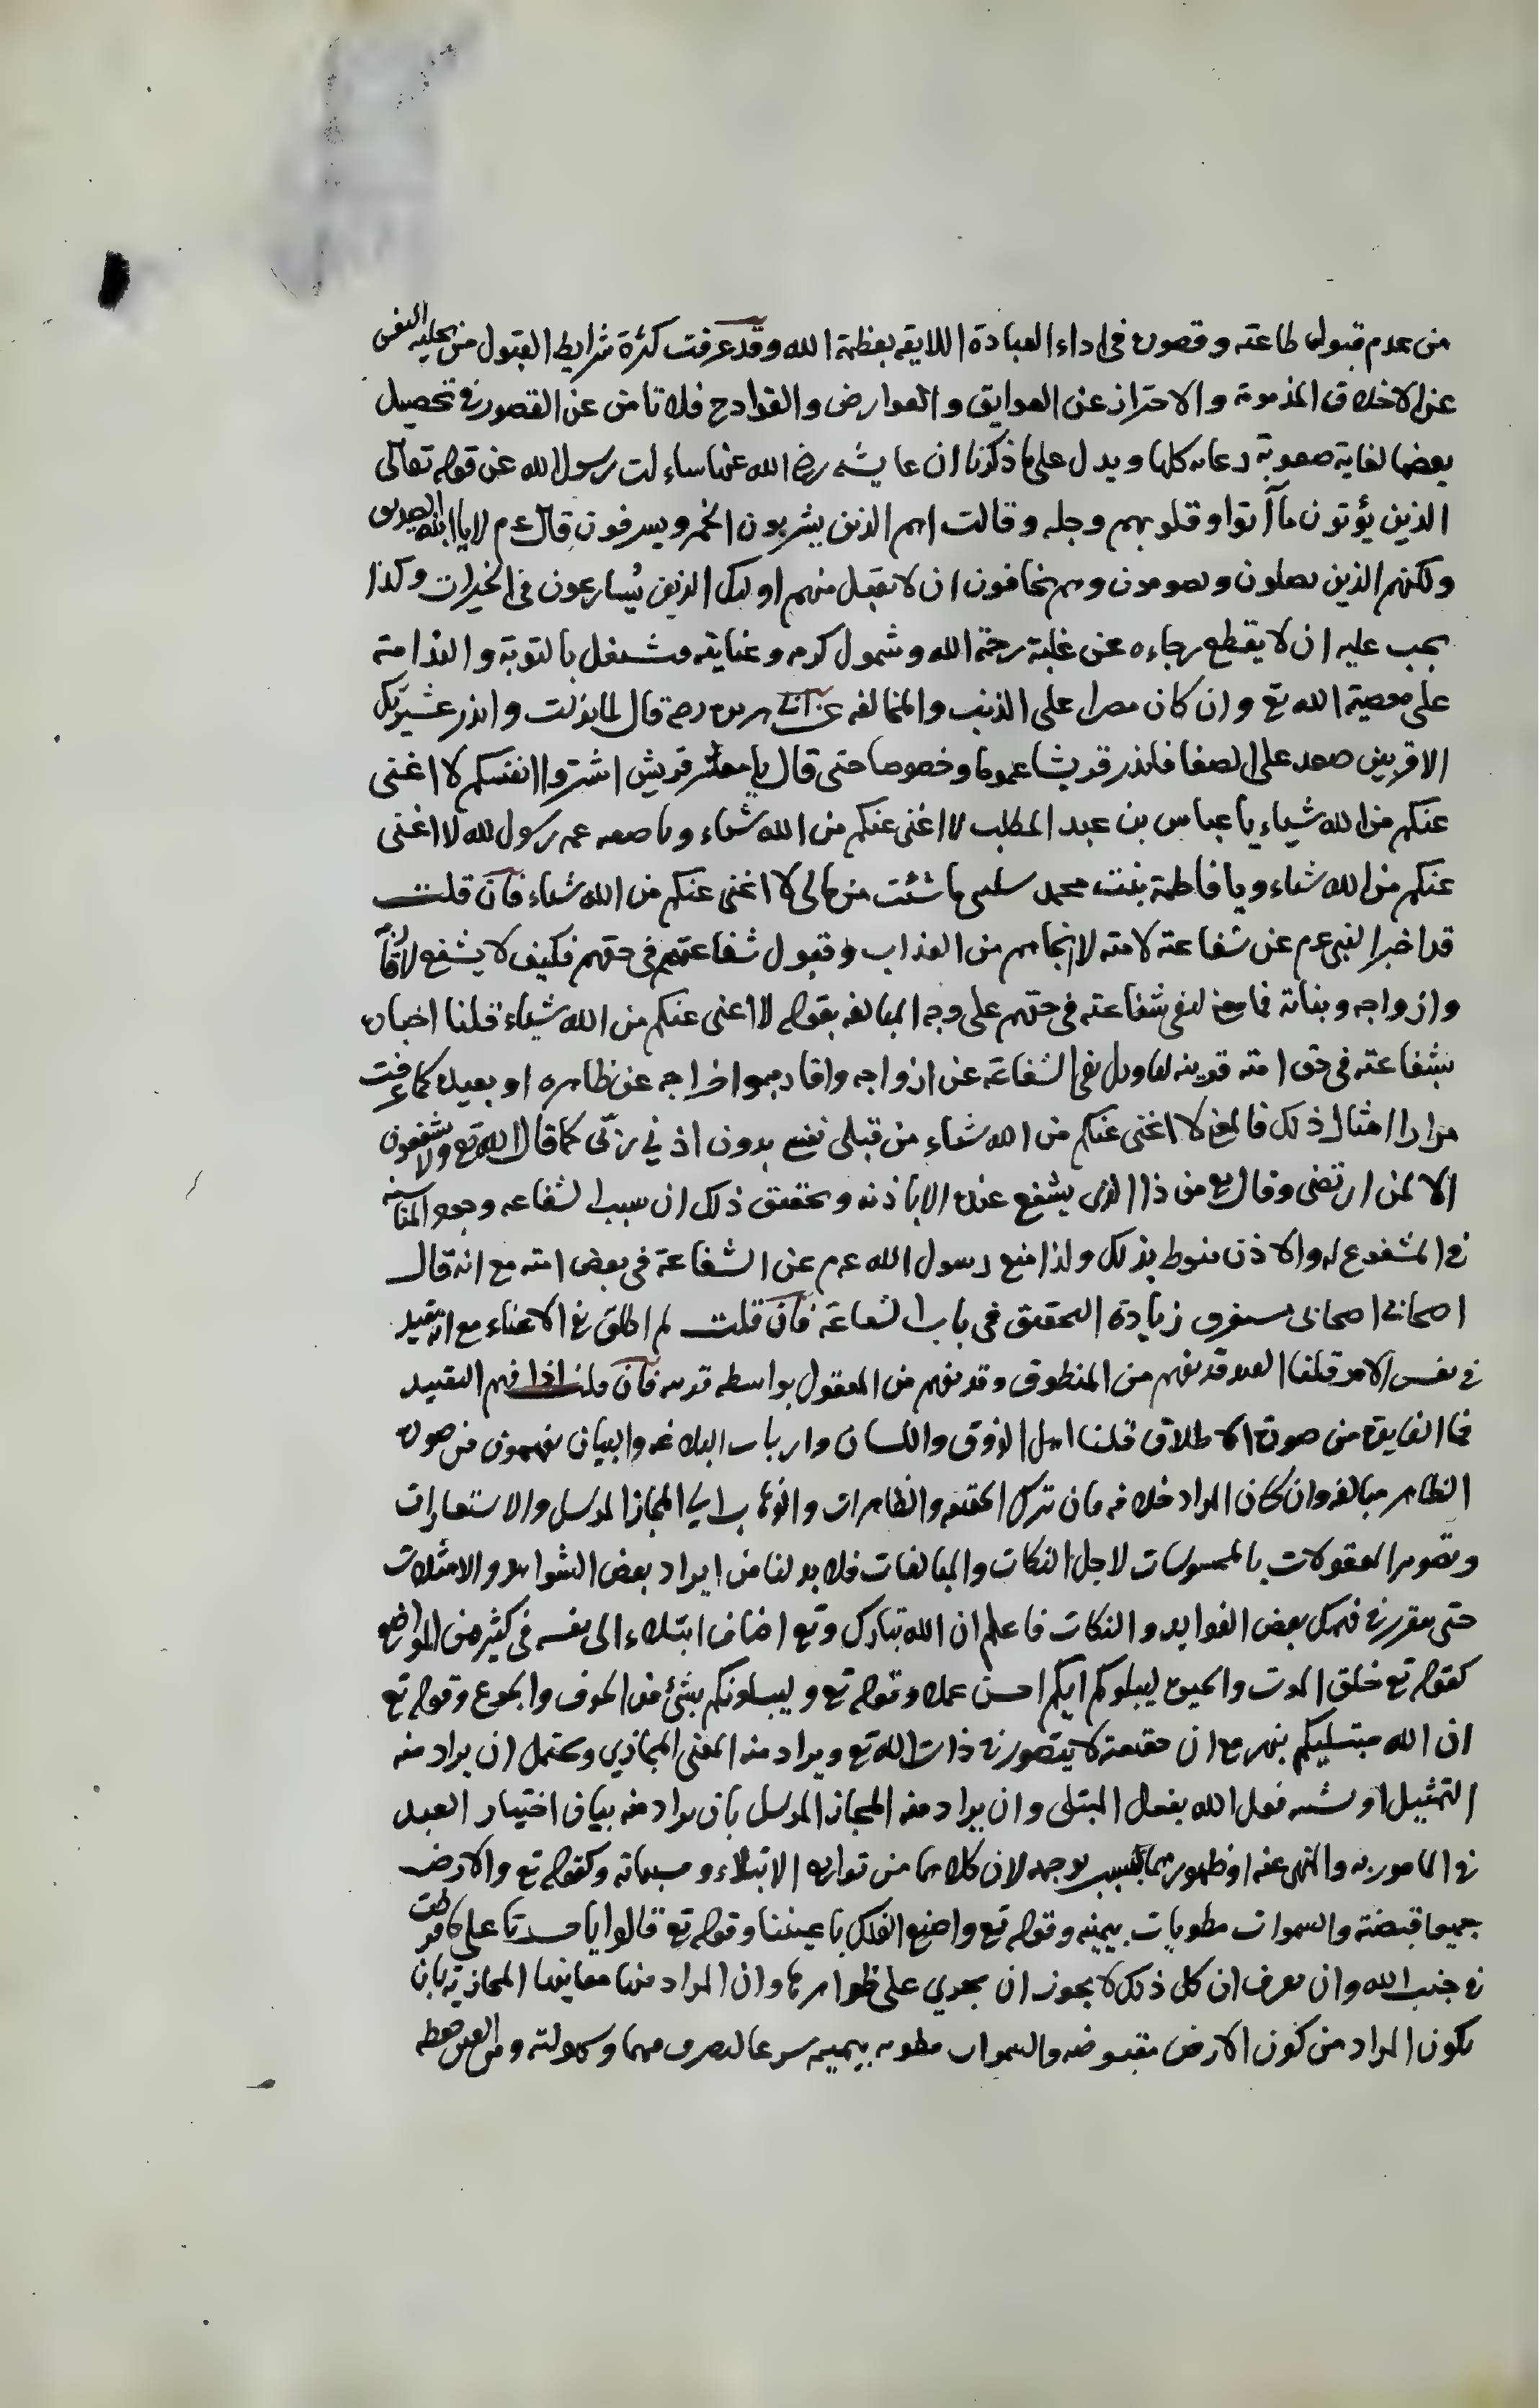 من عدم قبول طاعته وقصوره في اداء العبادة اللايقة بعظمة الله وقد عرفت كثرة شرايط القبول من تخليه النفس
عن الاخلاق المذمومة والاحتراز عن العوايق والعوارض والقوادح فلا تامن عن القصور في تحصيل
بعضها لغاية صعوبة رعايه كلها ويدل على ما ذكرنا ان عايشه رضي الله عنها ساءلت رسول الله عن قوله تعالى
الذين يؤتون ما آتوا وقلوبهم وجله وقالت اهم الذين يشربون الخمر ويسرفون قال عم لا يا ابنة الصديق
ولكنهم الذين يصلون ويصومون وهم يخافون ان لا يقبل منهم اولئك الذين يسارعون في الخيرات وكذا
يجب عليه ان لا يقطع رجاءه عن غلبة رحمة الله وشمول كرمه وعنايته فيشتغل بالتوبة والندامة
على معصية الله تع وان كان مصرا على الذنب والمخالفه عن ابي هريره رضه قال لما نزلت وانذر عشيرتك
الاقربين صعد على الصفا فانذر قريشا عموما وخصوصا حتى قال يا معشر قريش اشتروا انفسكم لا اغنى
عنكم من الله شياء يا عباس بن عبد المطلب لا اغنى عنكم من الله شياء ويا صفيه عمه رسول الله لا اغنى
عنكم من الله شياء ويا فاطمة بنت محمد سليني ما شئت من مالى لا اغنى عنكم من الله شياء فان قلت
قد اخبر النبي عم عن شفاعته لامته لانجاهم من العذاب وقبول شفاعتهم في حقهم فكيف لا يشفع لاقاربه
وازواجه وبناته فما معنى لنفي شفاعته في حقهم على وجه المبالغه بقوله لا اغنى عنكم من الله شياء قلنا اخباره
بشفاعته في حق امته قرينه لتاويل نفي الشفاعة عن ازواجه واقاربه واخراجه عن ظاهره او بعيده كما عرفت
مرارا امثال ذلك فالمعنى لا اغنى عنكم من الله شياء من قبلى نفسي بدون اذني ربى كما قال الله تع ولا يشفعون
الا لمن ارتضى وقال تع من ذا الذي يشفع عنده الا باذنه وتحقيق ذلك ان سبب الشفاعه وجود المناسبه
في المشفوع له والاذن منوط بذلك ولذا منع رسول الله عم عن الشفاعة في بعض امته مع انه قال
اصحابي اصحابى ستعرف زيادة التحقيق في باب الشفاعة فان قلت لم اطلق نفي الاغناء مع انه مقيد
في نفس الامر قلنا القيد قد يفهم من المنطوق وقد يفهم من المعقول بواسطه قرينه فان قلت اذا فهم التقييد
فما الفايدة من صورة الاطلاق قلنا اهل الذوق واللسان وارباب البلاغه والبيان يفهمون من صورة
الظاهر مبالغه وان كان المراد خلافه فان ترك الحقيقه والظاهرات والذهاب الى المجاز المرسل والاستعارات
وتصوير المعقولات بالمحسوسات لاجل النكات والمبالغات فلا بد لنا من ايراد بعض الشواهد والامثلات
حتى يقرر في فهمك بعض الفوايد والنكات فاعلم ان الله تبارك وتع اضاف ابتلاء الى نفسه في كثير من المواضع
كقوله تع خلق الموت والحيوة ليبلوكم ايكم احسن عملا وقوله تع وليبلونكم بشئ من الخوف والجوع وقوله تع
ان الله مبتليكم بنهر مع ان حقيقته لا يتصور في ذات الله تع ويراد منه المعنى المجازي ويحتمل ان يراد منه
التمثيل او يشبه فعل الله بفعل المبتلى وان يراد منه المجاز المرسل بان يراد منه بيان اختيار العبد
في المامور به والنهى عنه او ظهورهما بسبب توجهه لان كلاهما من توابع الابتلاء ومسبباته وكقوله تع والارض
جميعا قبضته والسموات مطويات بيمينه وقوله تع واصنع الفلك باعيننا وقوله تع قالوا يا حسرتا على ما فرطت
في جنب الله وان تعرف ان كل ذلك لا يجوز ان يجري على ظواهرها وان المراد منها معانيها المجازية بان
يكون المراد من كون الارض مقبوضه والسموات مطويه بيمينه التصرف فيهما وسهولته ومن العين